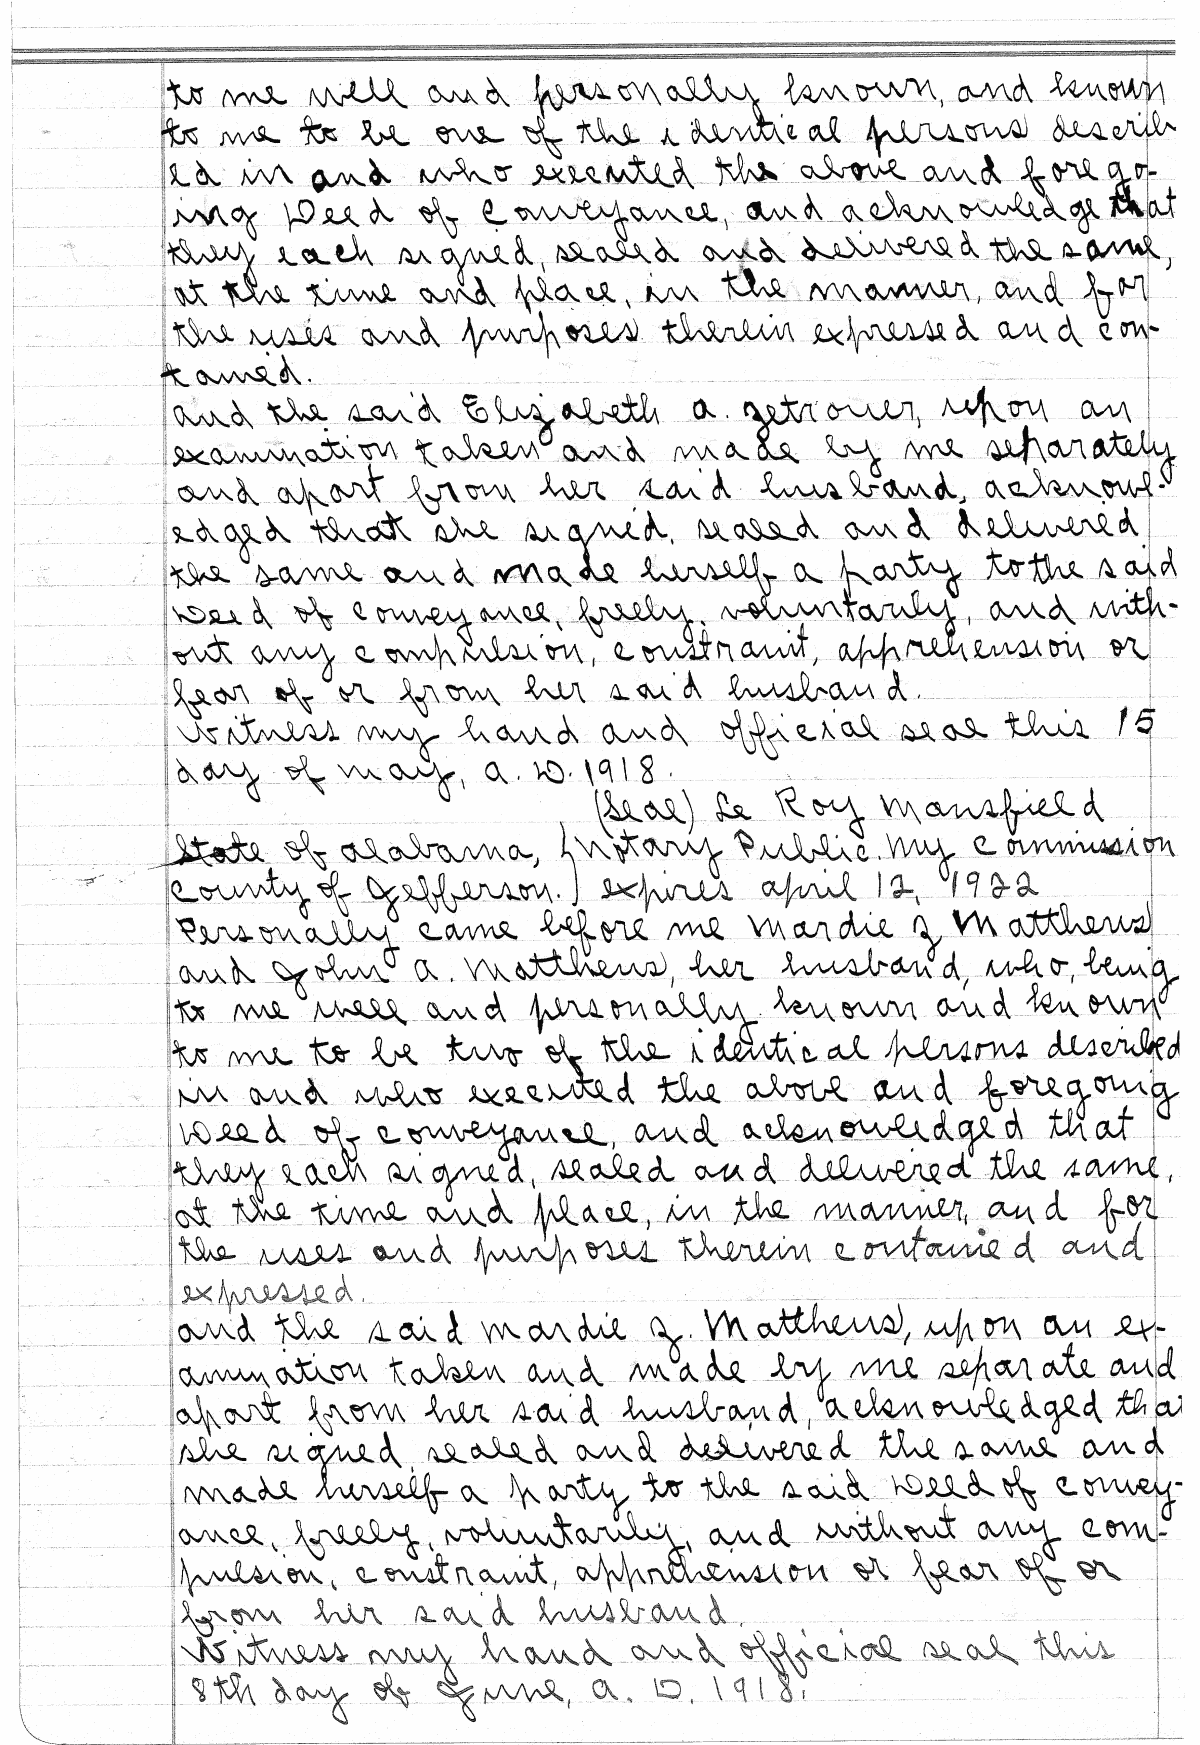 to me well and personally known, and known
to me to be one of the identical persons describ
ed in and who executed the above and forego-
ing Deed of Conveyance, and acknowledge that
they each signed, sealed and delivered the same,
at the time and place, in the manner, and for
the uses and purposes therein expressed and con-
tained.
and the said Elizabeth A. Zetrouer, upon an
examination taken and made by me separately
and apart from her said husband, acknowl-
edged that she signed, sealed and delivered
the same and made herself a party to the said
Deed of conveyance, freely, voluntarily, and with-
out any compulsion, constraint, apprehension or
fear of or from her said husband.
Witness my hand and official seal this 15
day of May, A. D. 1918.
(Seal) Le Roy Mansfield
State of Alabama, } Notary Public. My Commission
County of Jefferson. } expires April 12, 1922
Personally came before me Mardie Z Matthews
and John A. Matthews, her husband, who, being
to me well and personally known and known
to me to be two of the identical persons described
in and who executed the above and foregoing
Deed of conveyance, and acknowledged that
they each signed, sealed and delivered the same,
at the time and place, in the manner, and for
the uses and purposes therein contained and
expressed.
and the said Mardie Z. Matthews, upon an ex-
amination taken and made by me separate and
apart from her said husband, acknowledged that
she signed, sealed and delivered the same and
made herself a party to the said Deed of convey-
ance, freely, voluntarily, and without any com-
pulsion, constraint, apprehension or fear of or
from her said husband.
Witness my hand and official seal this
8th day of June, A. D. 1918.